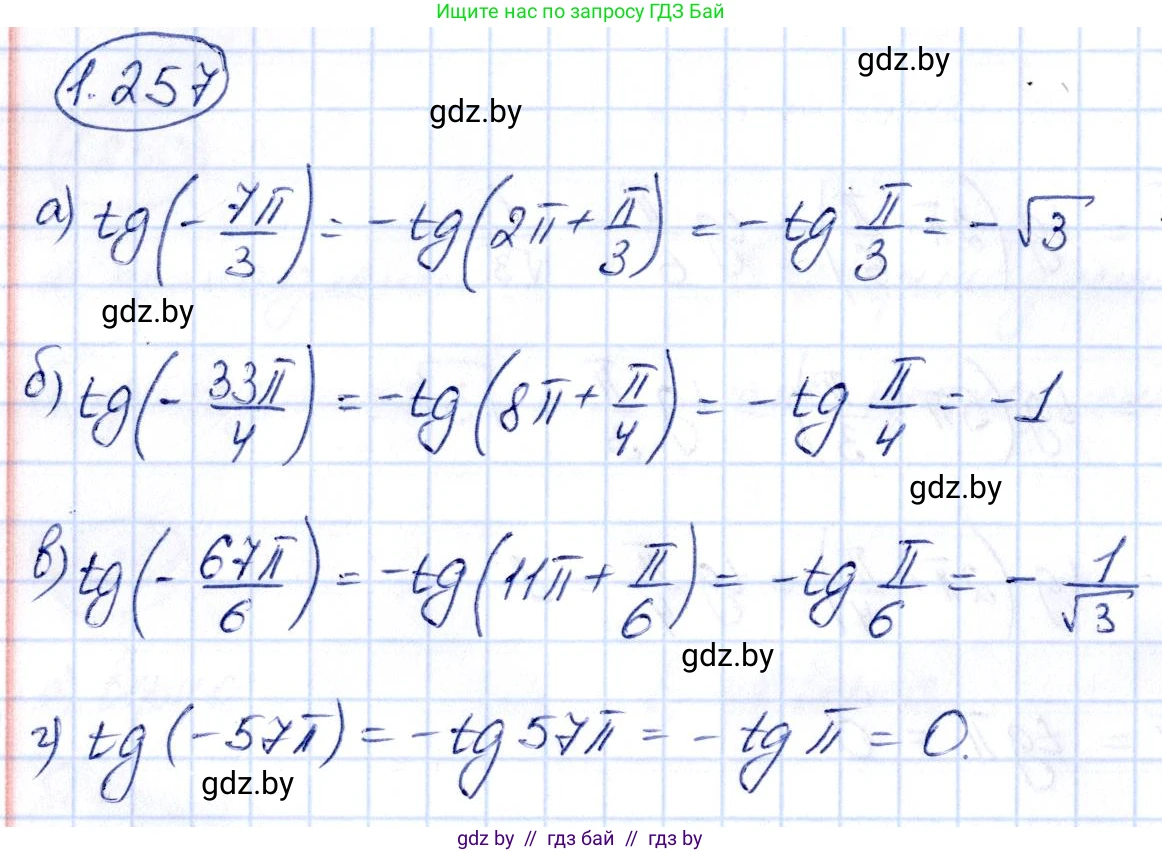 Ищите нас по запросу ГДЗ Бай
1.257
gdz.by
gdz.by
а) tg(-7π/3) = -tg(2π+π/3) = -tg π/3 = -√3
gdz.by
б) tg(-33π/4) = -tg(8π+π/4) = -tg π/4 = -1
gdz.by
в) tg(-67π/6) = -tg(11π+π/6) = -tg π/6 = -1/√3
gdz.by
г) tg(-57π) = -tg 57π = -tg π = 0.
gdz.by
gdz by // гдз бай // гдз by